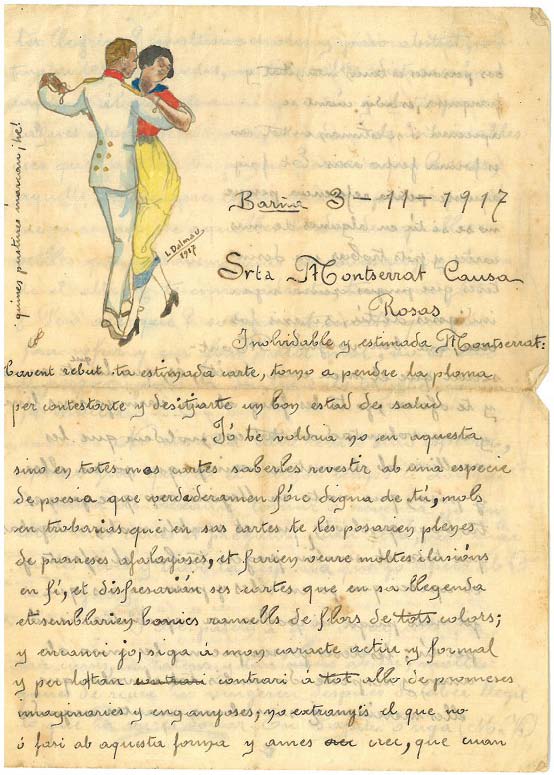 quines puntines máxcan, he!
L Dalmau
1917
Barna 3-11-1917
Srta Montserrat Causa
Rosas
Inolvidable y estimada Montserrat:
havent rebut ta estimada carte, torno a pendre la ploma
per contestarte y desitjarte un bon estad de salud
Jó be voldria no en aquesta
sino en totes mas cartes saberles revestir ab una especie
de poesia que verdaderamen fórc digna de tú, mols
en trobarias que en sas cartes te les posarien plenes
de promeses afalagoses, et farien veure moltes ilusións
en fí, et disfresarián ses cartes que en sa llegenda
etsemblarien bonics ramells de flors de tots colors;
y encanvi jo, siga á mon caracte actiu y formal
y per lo tan contrari á tot allo de promeses
imaginaries y enganyoses; no extranyis el que no
ó fasi ab aquesta forma y ames crec, que cuan